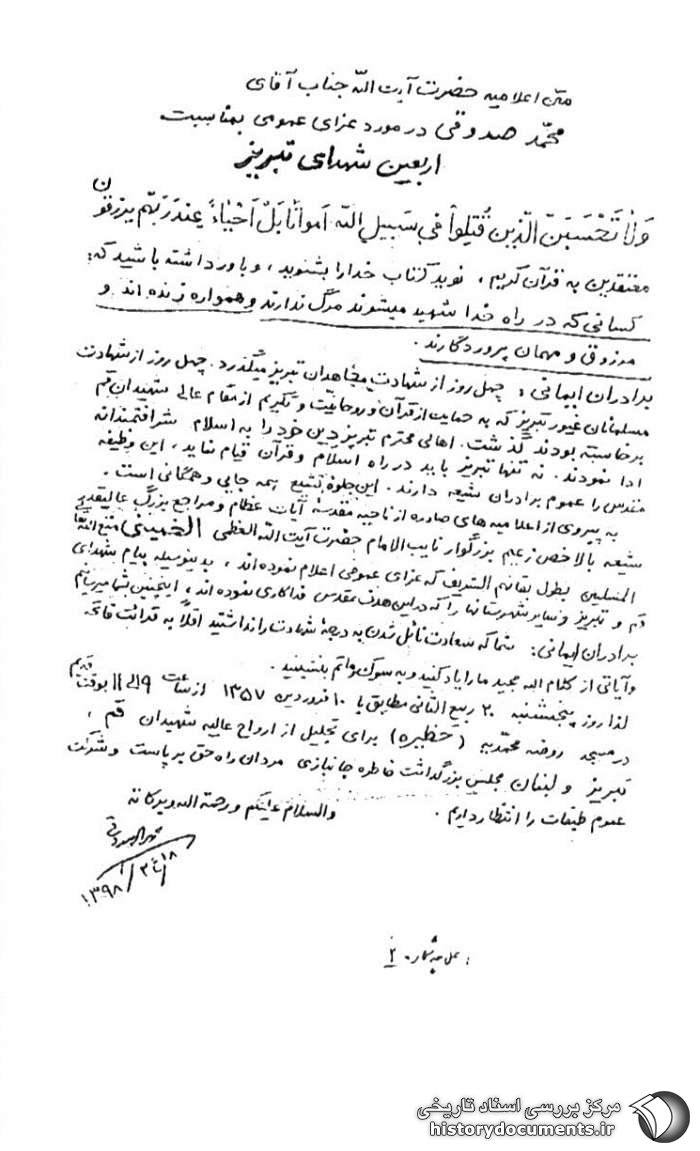 متن اعلامیه حضرت آیت الله جناب آقای
محمّد صدوقی در مورد عزای عمومی بمناسبت
اربعین شهدای تبریز
وَلاٰ تَحْسَبَنَّ الَّذینَ قُتِلُواْ فی سَبیلِ اللهِ اَمواتاً بَلْ اَحْیٰاءٌ عِندَ رَبِّهِم یرزقون
معتقدین به قرآن کریم، نوید کتاب خدا را بشنوید، و باور داشته باشید که:
کسانی که در راه خدا شهید میشوند مرگ ندارند و همواره زنده اند و
مرزوق و مهمان پروردگارند.
برادران ایمانی، چهل روز از شهادت مجاهدان تبریز میگذرد. چهل روز از شهادت
مسلمانان غیور تبریز که به حمایت از قرآن و روحانیت و تکریم از مقام عالی شهیدان قم
برخاسته بودند گذشت. اهالی محترم تبریز دین خود را به اسلام شرافتمندانه
ادا نمودند. نه تنها تبریز باید در راه اسلام و قرآن قیام نماید، این وظیفه
مقدس را عموم برادران شیعه دارند. این جلوهٔ تشیع همه جایی و همگانی است.
به پیروی از اعلامیه های صادره از ناحیه مقدسهٔ آیات عظام و مراجع بزرگ عالیقدر
شیعه بالاخص زعیم بزرگوار نایب الامام حضرت آیت الله العظمی الخمینی متع الله
المسلمین بطول بقائه الشریف که عزای عمومی اعلام نموده اند، بدینوسیله پیام شهدای
قم و تبریز و سایر شهرستانها را که در این هدف مقدس فداکاری نموده اند، اینچنین بشما میرسانم
برادران ایمانی: شما که سعادت نائل شدن به درجهٔ شهادت را نداشتید اقلاً به قرائت فاتحه
و آیاتی از کلام الله مجید ما را یاد کنید و به سوک و ماتم بنشینید.
لذا روز پنجشنبه ۲۰ ربیع الثانی مطابق با ۱۰ فروردین ۱۳۵۷ از ساعت ۹ الی ۱۱ بوقت قدیم
در مسجد روضه محمّدیه (حظیره) برای تجلیل از ارواح عالیه شهیدان قم،
تبریز و لبنان مجلس بزرگداشت خاطره جانبازی مردان راه حق برپاست و شرکت
عموم طبقات را انتظار داریم. والسلام علیکم و رحمة الله و برکاته
محمد الصدوقی
۱۸/ع۲/۱۳۹۸
۲
مرکز بررسی اسناد تاریخی
historydocuments.ir